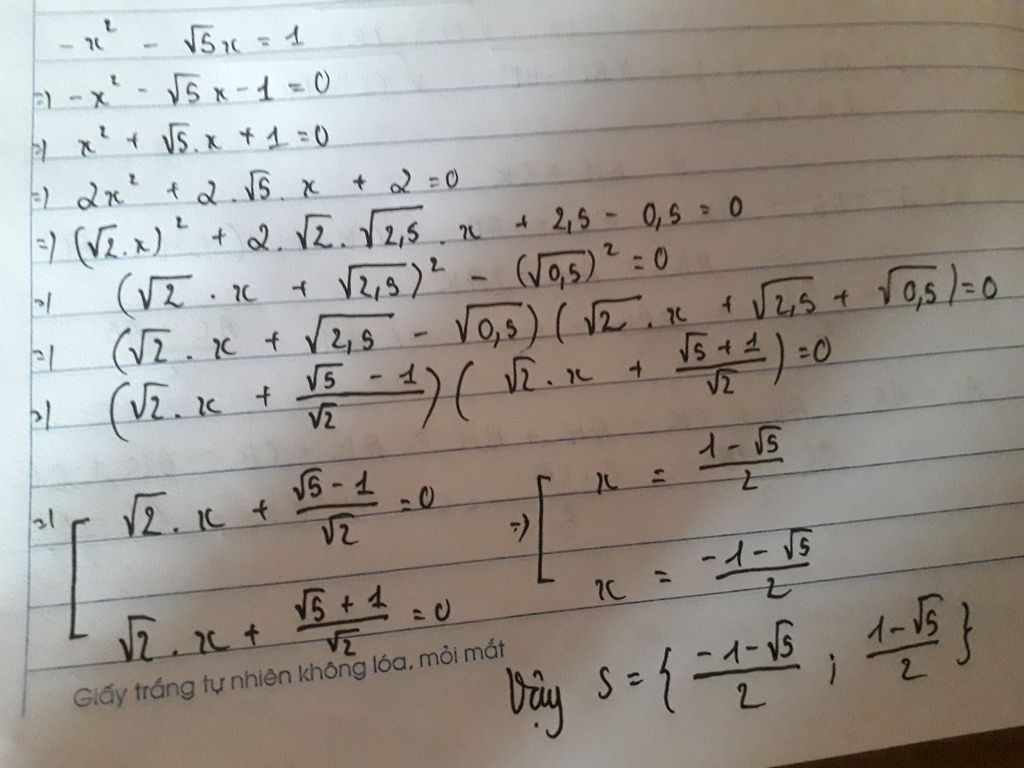 -x² - √5x = 1
=) -x² - √5x - 1 = 0
=) x² + √5.x + 1 = 0
=) 2x² + 2.√5.x + 2 = 0
=) (√2.x)² + 2.√2.√2,5.x + 2,5 - 0,5 = 0
=) (√2.x + √2,5)² - (√0,5)² = 0
=) (√2.x + √2,5 - √0,5)(√2.x + √2,5 + √0,5) = 0
=) (√2.x + (√5 - 1)/√2)(√2.x + (√5 + 1)/√2) = 0
=) [ √2.x + (√5 - 1)/√2 = 0 =) [ x = (1 - √5)/2
√2.x + (√5 + 1)/√2 = 0 x = (-1 - √5)/2
Giấy trắng tự nhiên không lóa, mỏi mắt
Vậy S = { (-1 - √5)/2 ; (1 - √5)/2 }